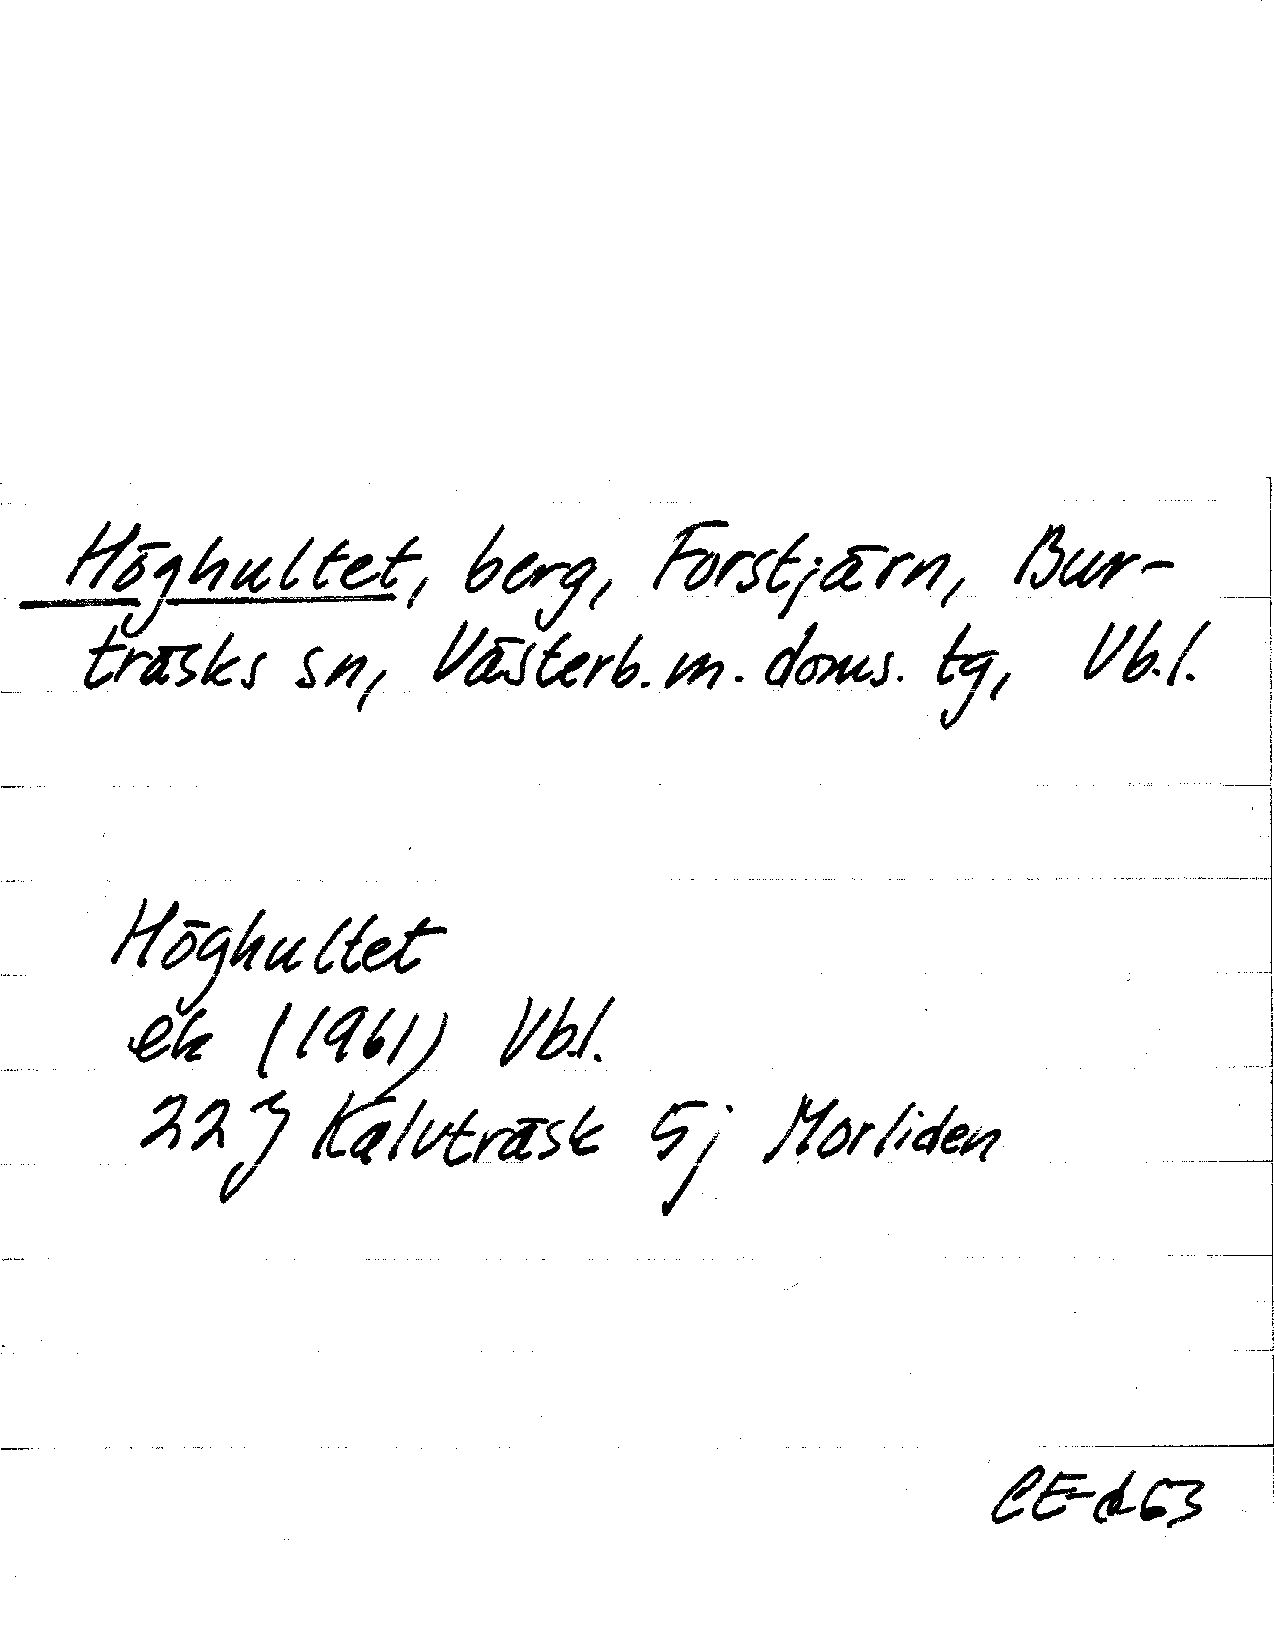 Höghultet, berg, Forstjärn, Bur-
träsks sn, Västerb. m. doms. tg, Vb.l.
Höghultet
ek (1961) Vb.l.
22 J Kalvträsk 5j Morliden
CE-d 63